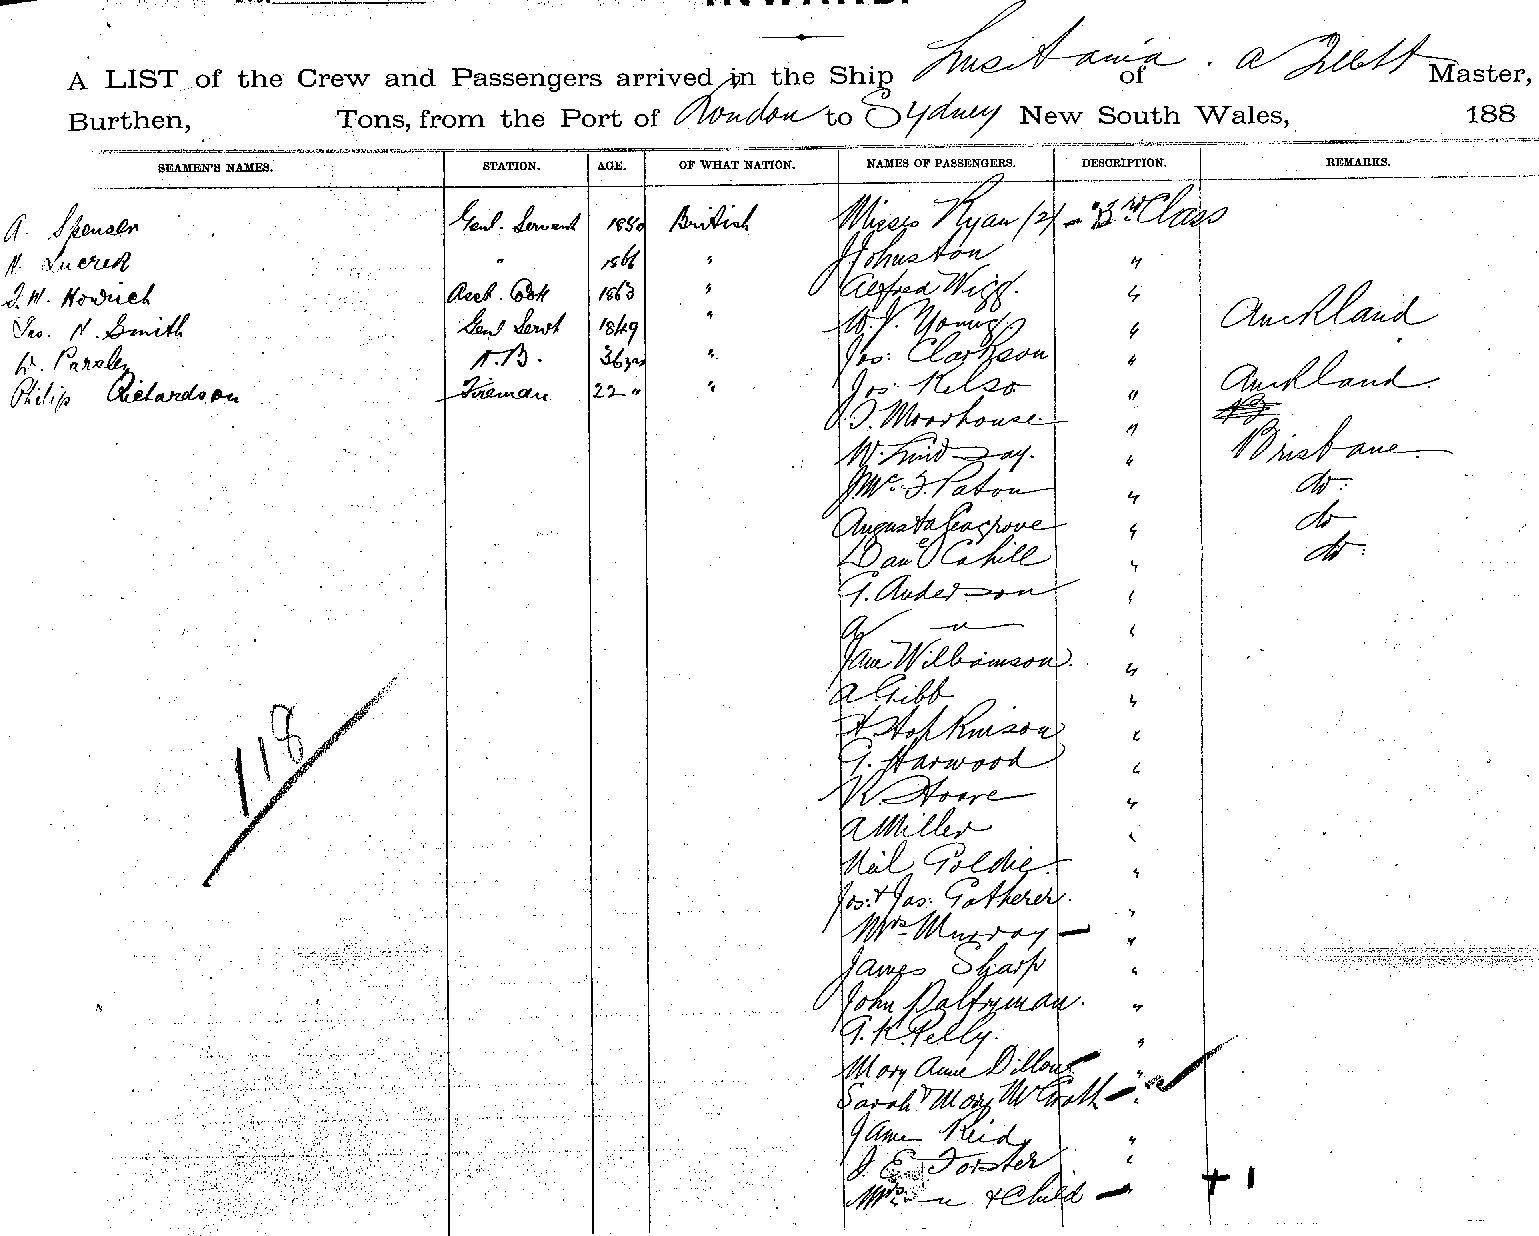 A LIST of the Crew and Passengers arrived in the Ship Lusitania . of A Master,
Burthen, Tons, from the Port of London to Sydney New South Wales, 188
SEAMEN'S NAMES. STATION. AGE. OF WHAT NATION. NAMES OF PASSENGERS. DESCRIPTION. REMARKS.
A. Spenser Genl. Servant 1850 British Misses Ryan (2) - 3rd Class
" 1861 " J Johnston "
Asst. Cook 1863 " Alfred Wigg. "
Jas. H. Smith Genl Servt 1849 " W. J. Young " Auckland
W. Parsley A.B. 36 yrs " Jos: Clarkson "
Philip Richardson Fireman 22 " " Jos: Kelso " Auckland
J. Moorhouse "
W. Lindsay. " Brisbane
J Mc. F. Paton " do:
Augusta Seagrove " do
Danl Cahill " do:
G. Anderson "
"
Jane Williamson "
A Gibb "
H Hopkinson "
G. Harwood "
K Hoare "
A Miller "
Neil Goldie "
Jos: & Jas: Gatherer. "
Mrs Murray - "
James Sharp "
John Dalryman. "
G. K. Pelly. "
Mary Anne Dillon "
Sarah & Mary McGrath - "
Jane Reid "
J. E. Forster "
Mrs " & Child - " + 1
118